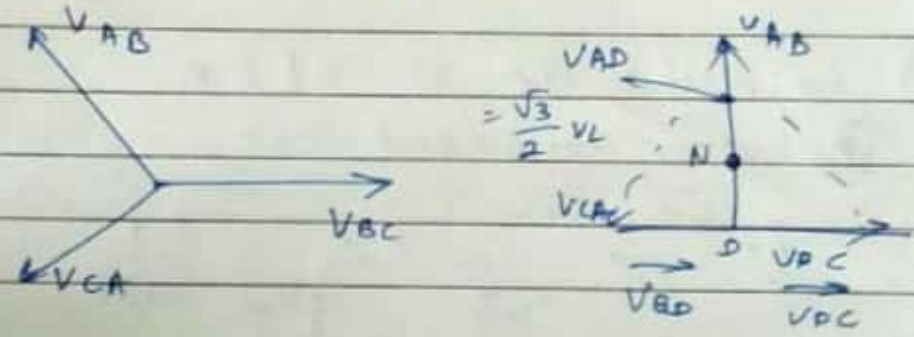 VAB
VBC
VCA
VAB
VAD
= √3/2 VL
N
VCA
D
VDC
VBD
VDC